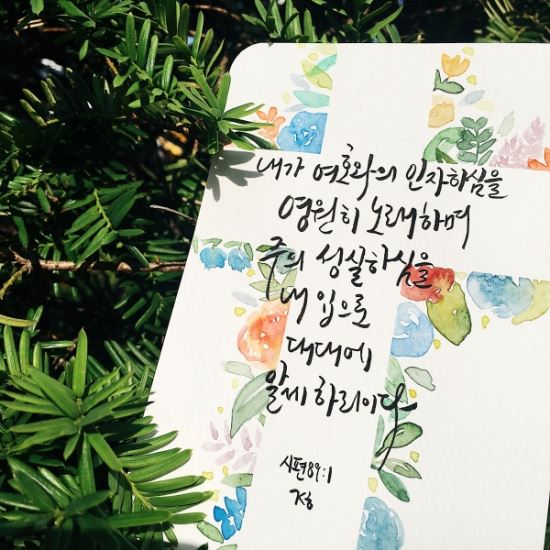 내가 여호와의 인자하심을
영원히 노래하며
주의 성실하심을
내 입으로
대대에
알게 하리이다
시편 89:1